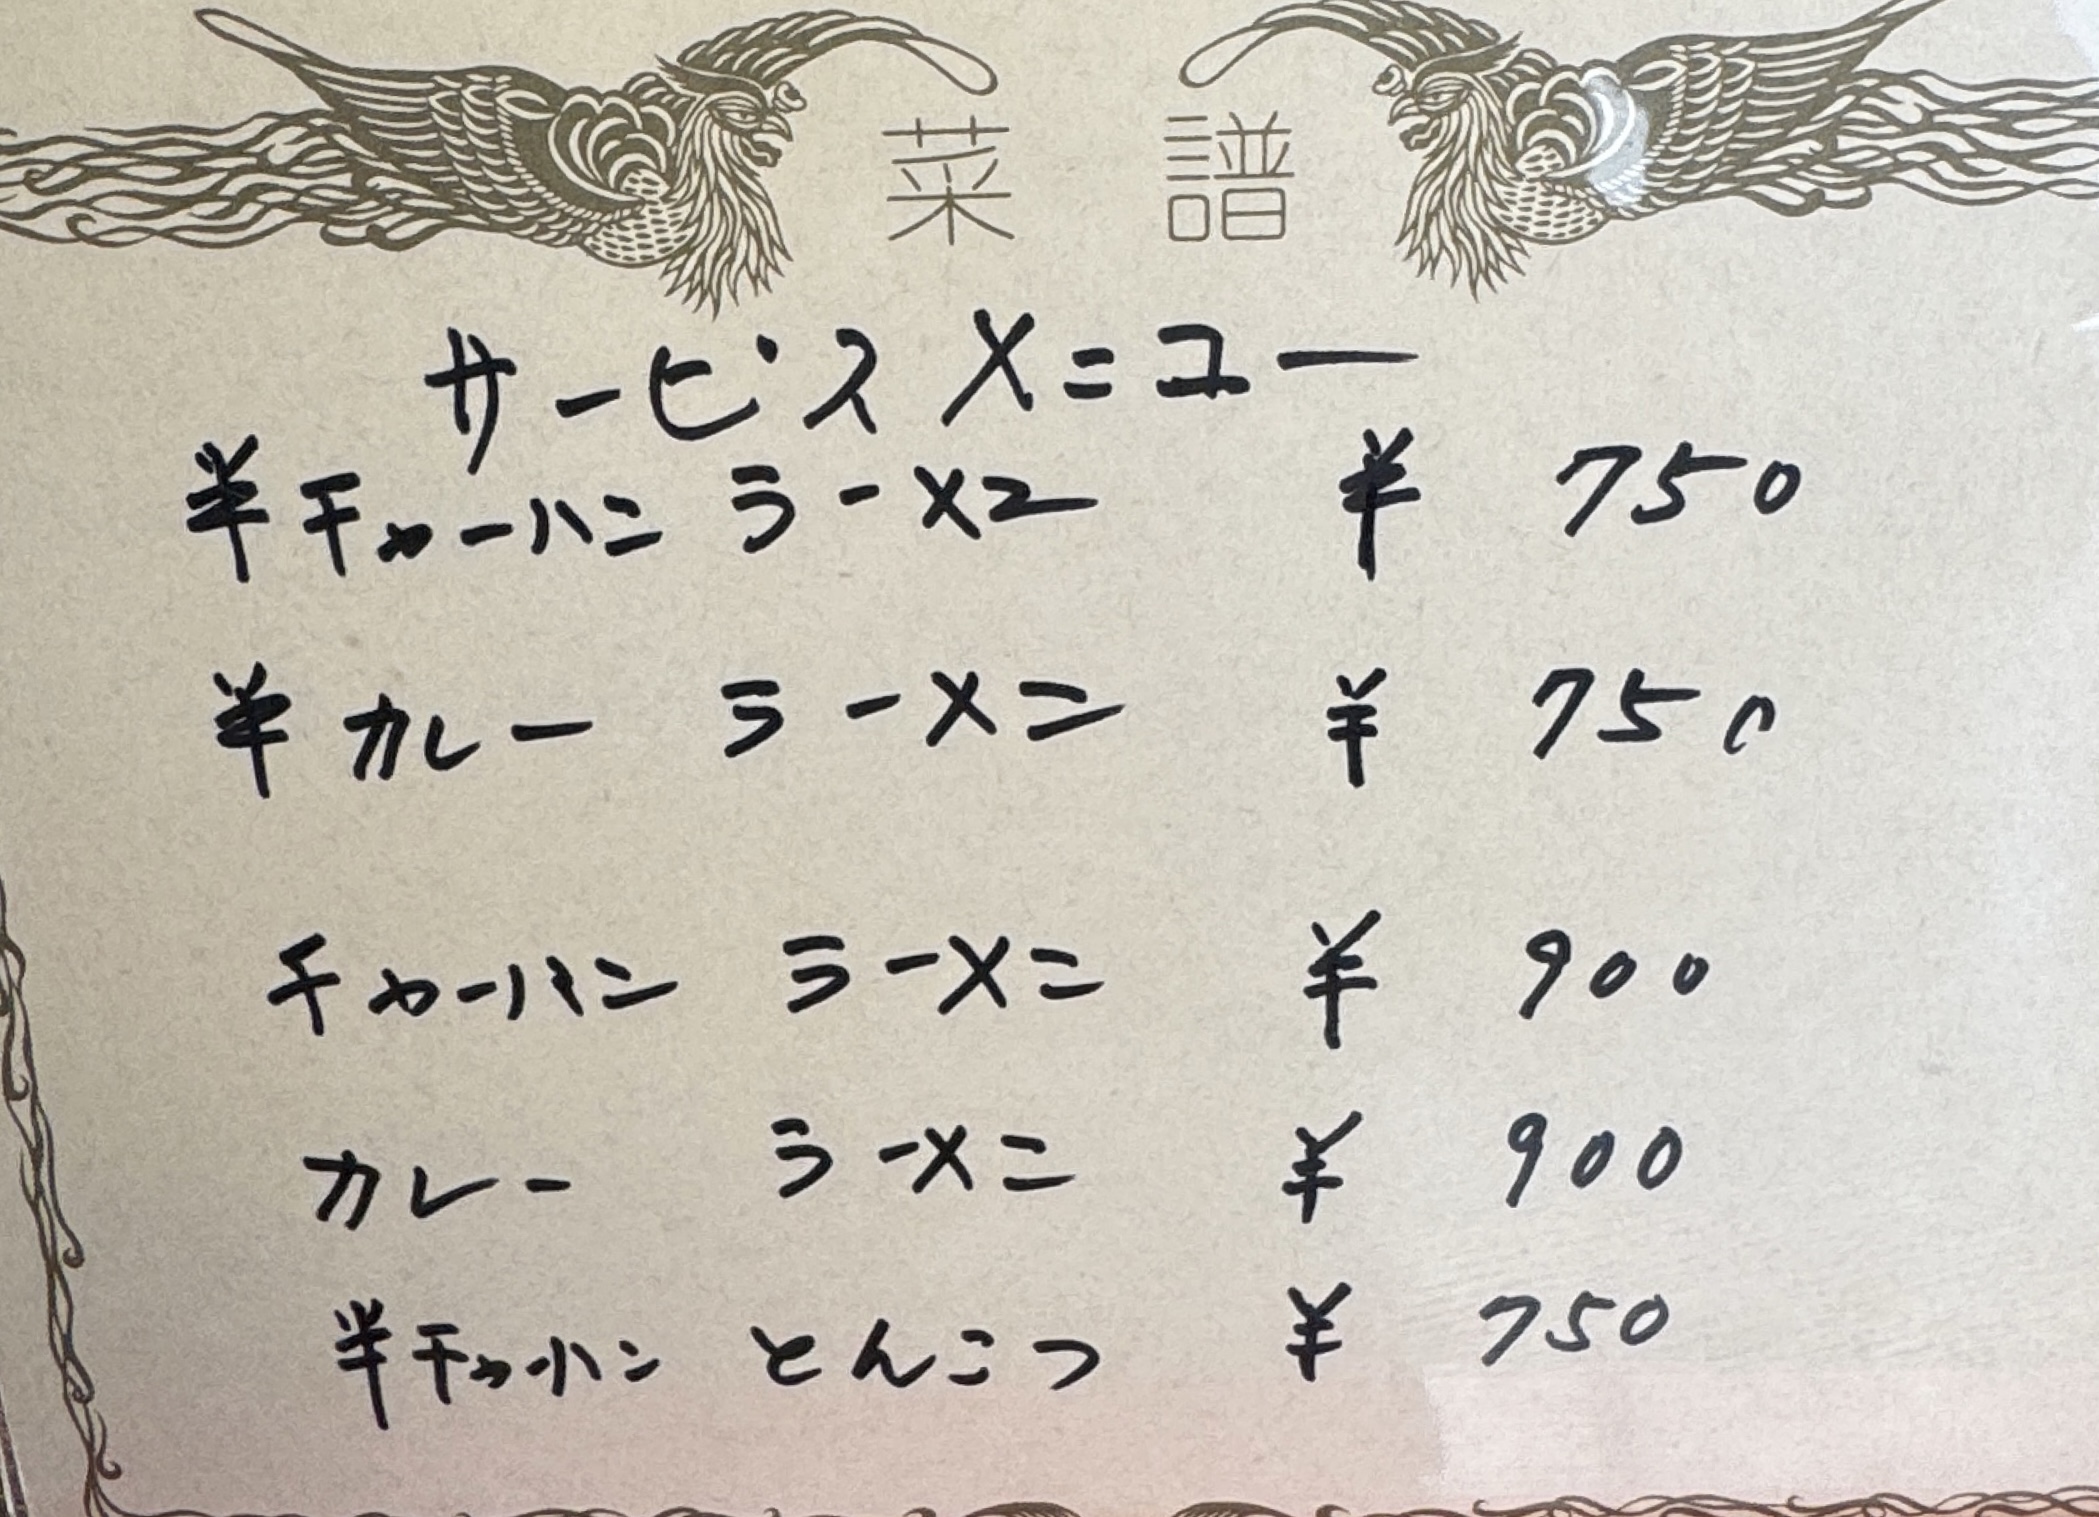 菜譜
サービスメニュー
半チャーハン ラーメン ¥ 750
半カレー ラーメン ¥ 750
チャーハン ラーメン ¥ 900
カレー ラーメン ¥ 900
半チャーハン とんこつ ¥ 750